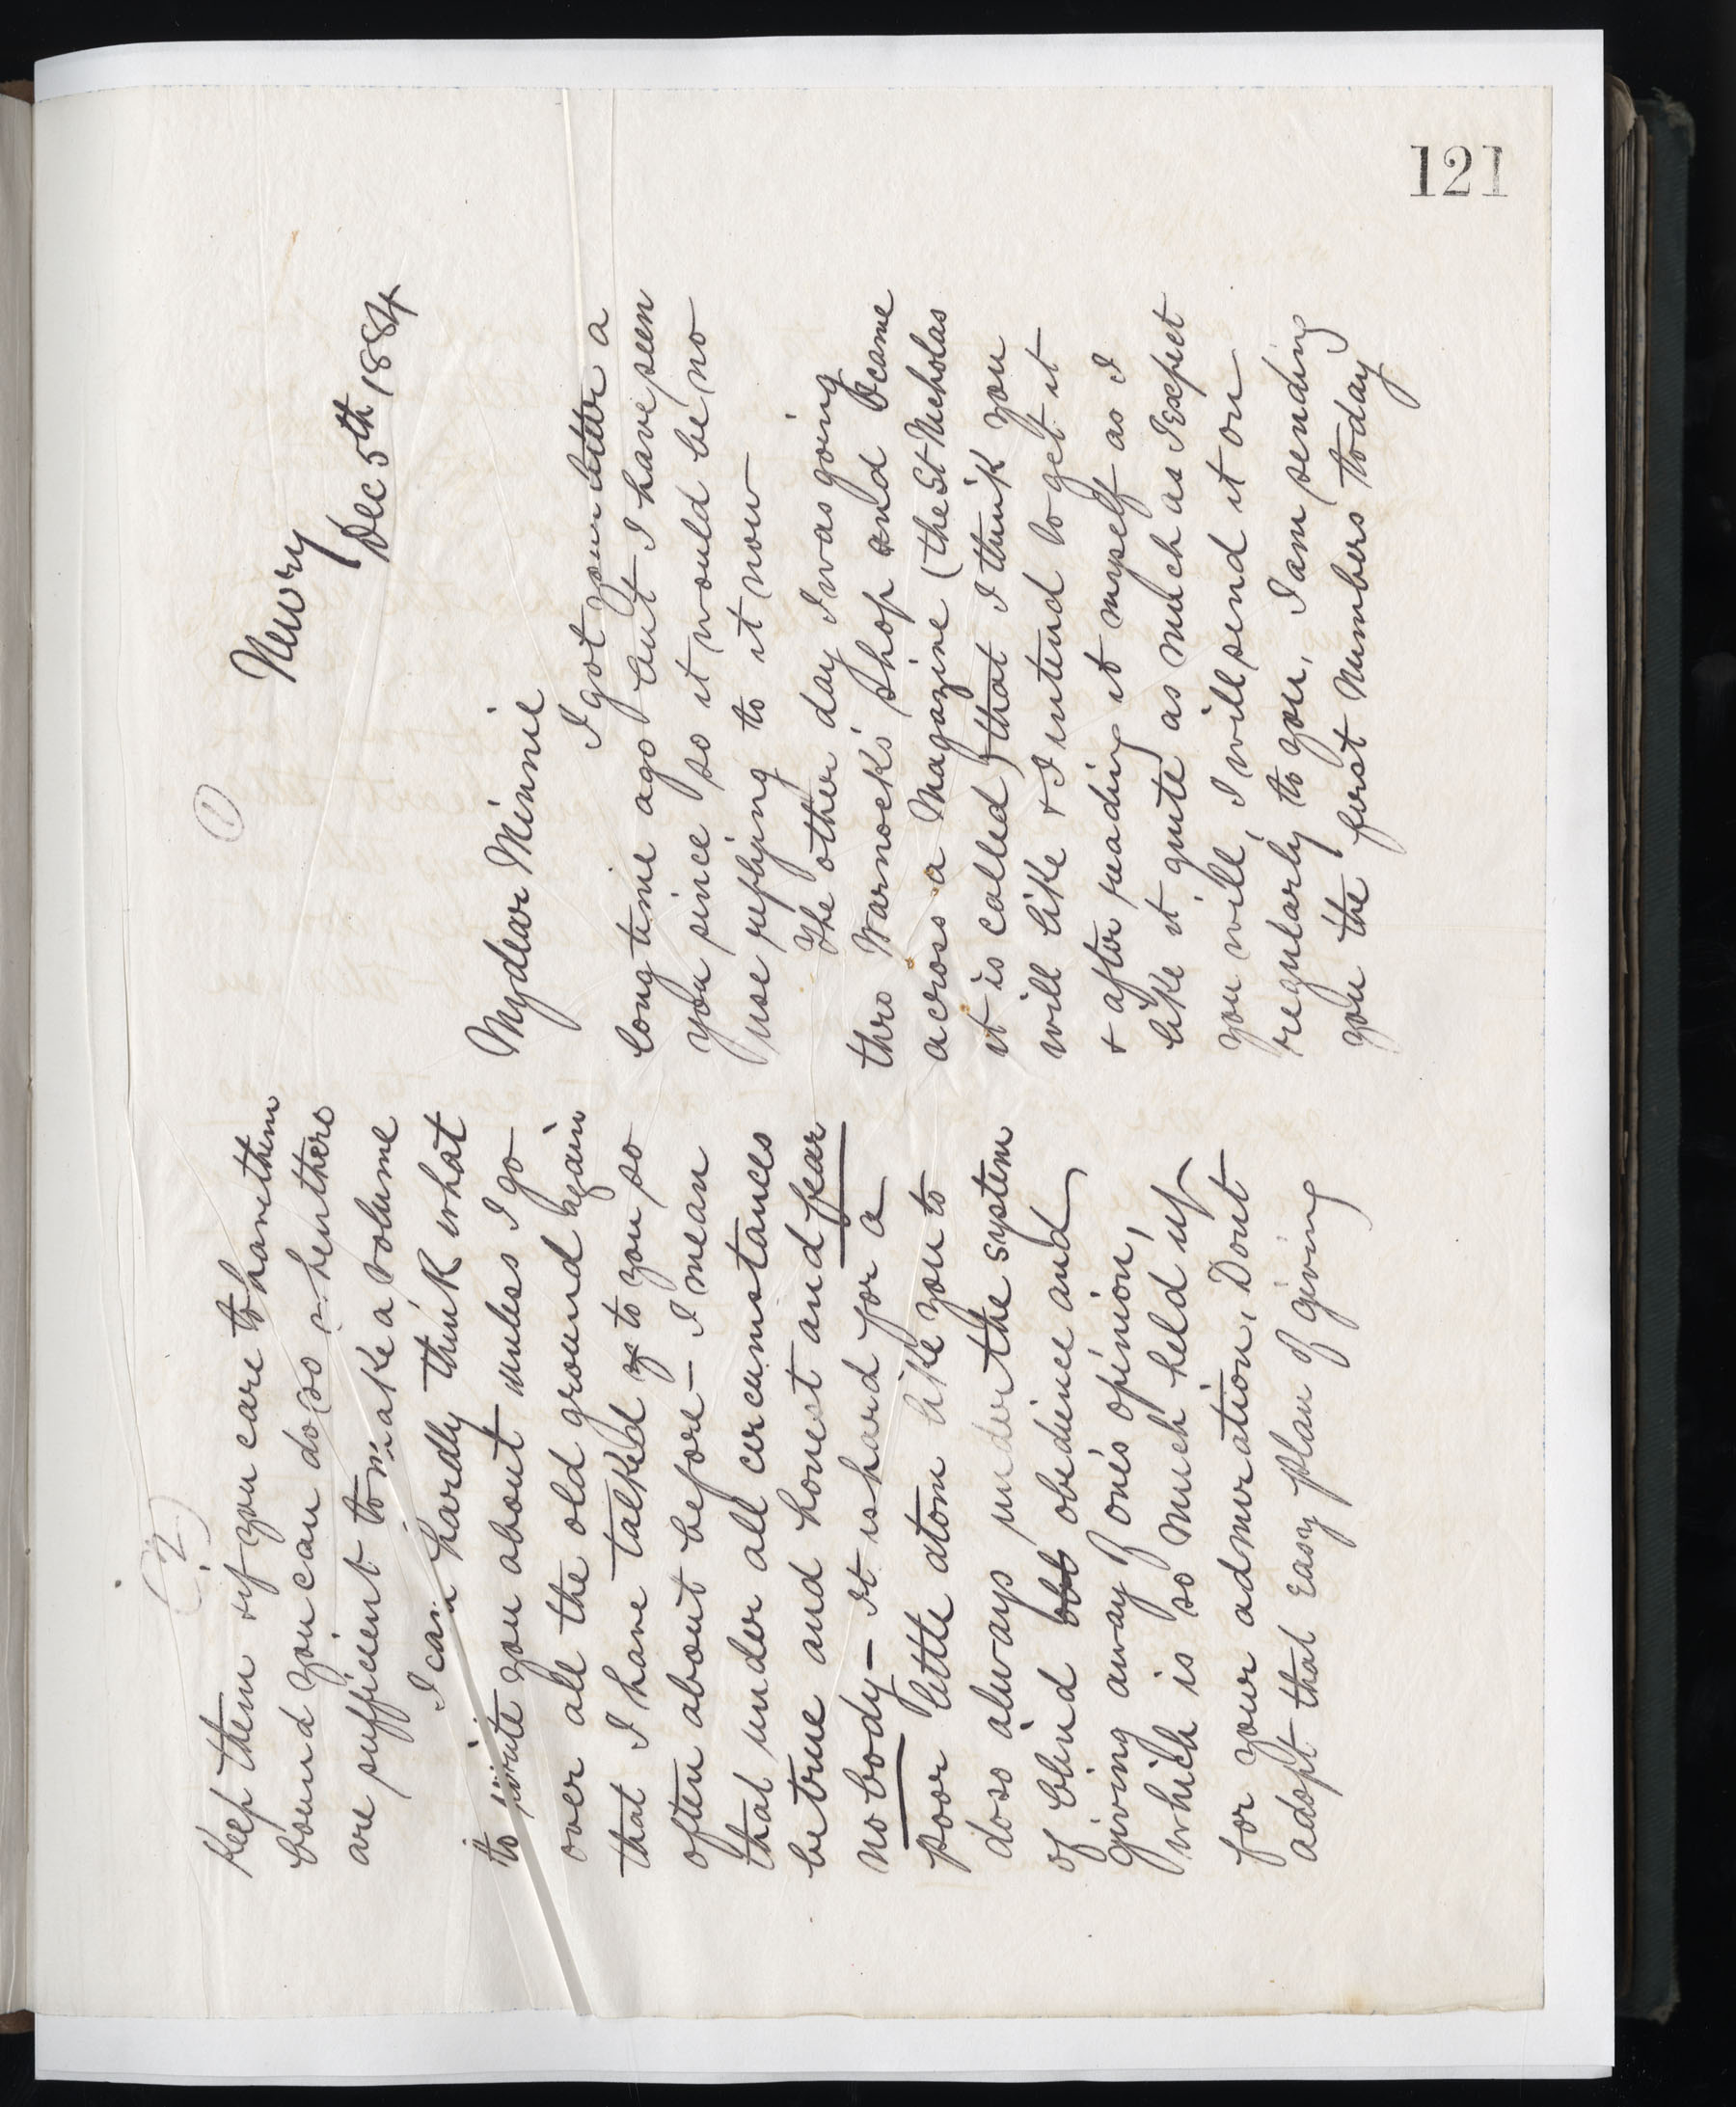 121
(1)
Newry
Dec 5th 1884
My dear Minnie
I got your letter a
long time ago but I have seen
you since so it would be no
use replying to it now
The other day I was going
thro Warnock's shop and I came
across a Magazine (the St Nicholas
it is called) that I think you
will like & I intend to get it
& after reading it myself as I
like it quite as much as I expect
you will, I will send it on
regularly to you, I am sending
you the first numbers today
(2)
Keep them if you care to have them
bound you can do so when there
are sufficient to make a volume
I can hardly think what
to write you about unless I go
over all the old ground again
that I have talked to you so
often about before – I mean
that under all circumstances
be true and honest and fear
no body – It is hard for a
poor little atom like you to
do so always under the system
of blind obt obedience and
giving away of one's opinion,
which is so much held up
for your admiration, Dont
adopt that easy plan of giving